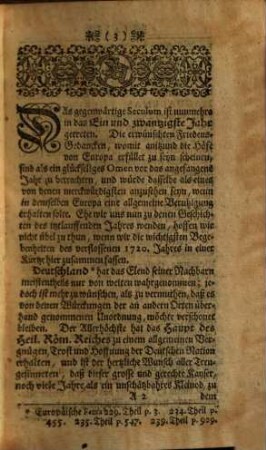 ( 3 )
DAs gegenwärtige Seculum ist nunmehro
in das Ein und zwantzigste Jahr
getreten. Die erwünschten Friedens-
Gedancken, womit anitzund die Höfe
von Europa erfüllet zu seyn scheinen,
sind als ein glückseliges Omen vor das angefangene
Jahr zu betrachten, und würde dasselbe als eines
von denen merckwürdigsten anzusehen seyn, wann
in demselben Europa eine allgemeine Beruhigung
erhalten solte. Ehe wir uns nun zu denen Geschich-
ten des itzlauffenden Jahres wenden, hoffen wir
nicht übel zu thun, wenn wir die wichtigsten Bege-
benheiten des verflossenen 1720. Jahres in einer
Kürtze hier zusammen fassen.
Deutschland * hat das Elend seiner Nachbarn
meistentheils nur von weiten wahrgenommen; je-
doch ist mehr zu wünschen, als zu vermuthen, daß es
von denen Würckungen der an andern Orten über-
hand genommenen Unordnung, möchte verschonet
bleiben. Der Allerhöchste hat das Haupt des
Heil. Röm. Reiches zu einem allgemeinen Ver-
gnügen, Trost und Hoffnung der Deutschen Nation
erhalten, und ist der hertzliche Wunsch aller Treu-
gesinnten, daß dieser grosse und gerechte Kayser,
noch viele Jahre, als ein unschätzbahres Kleinod, zu
A 2 dem
* Europäische Fama 229. Theil p. 3. 234. Theil p.
455. 235. Theil p. 547. 239. Theil p. 929.